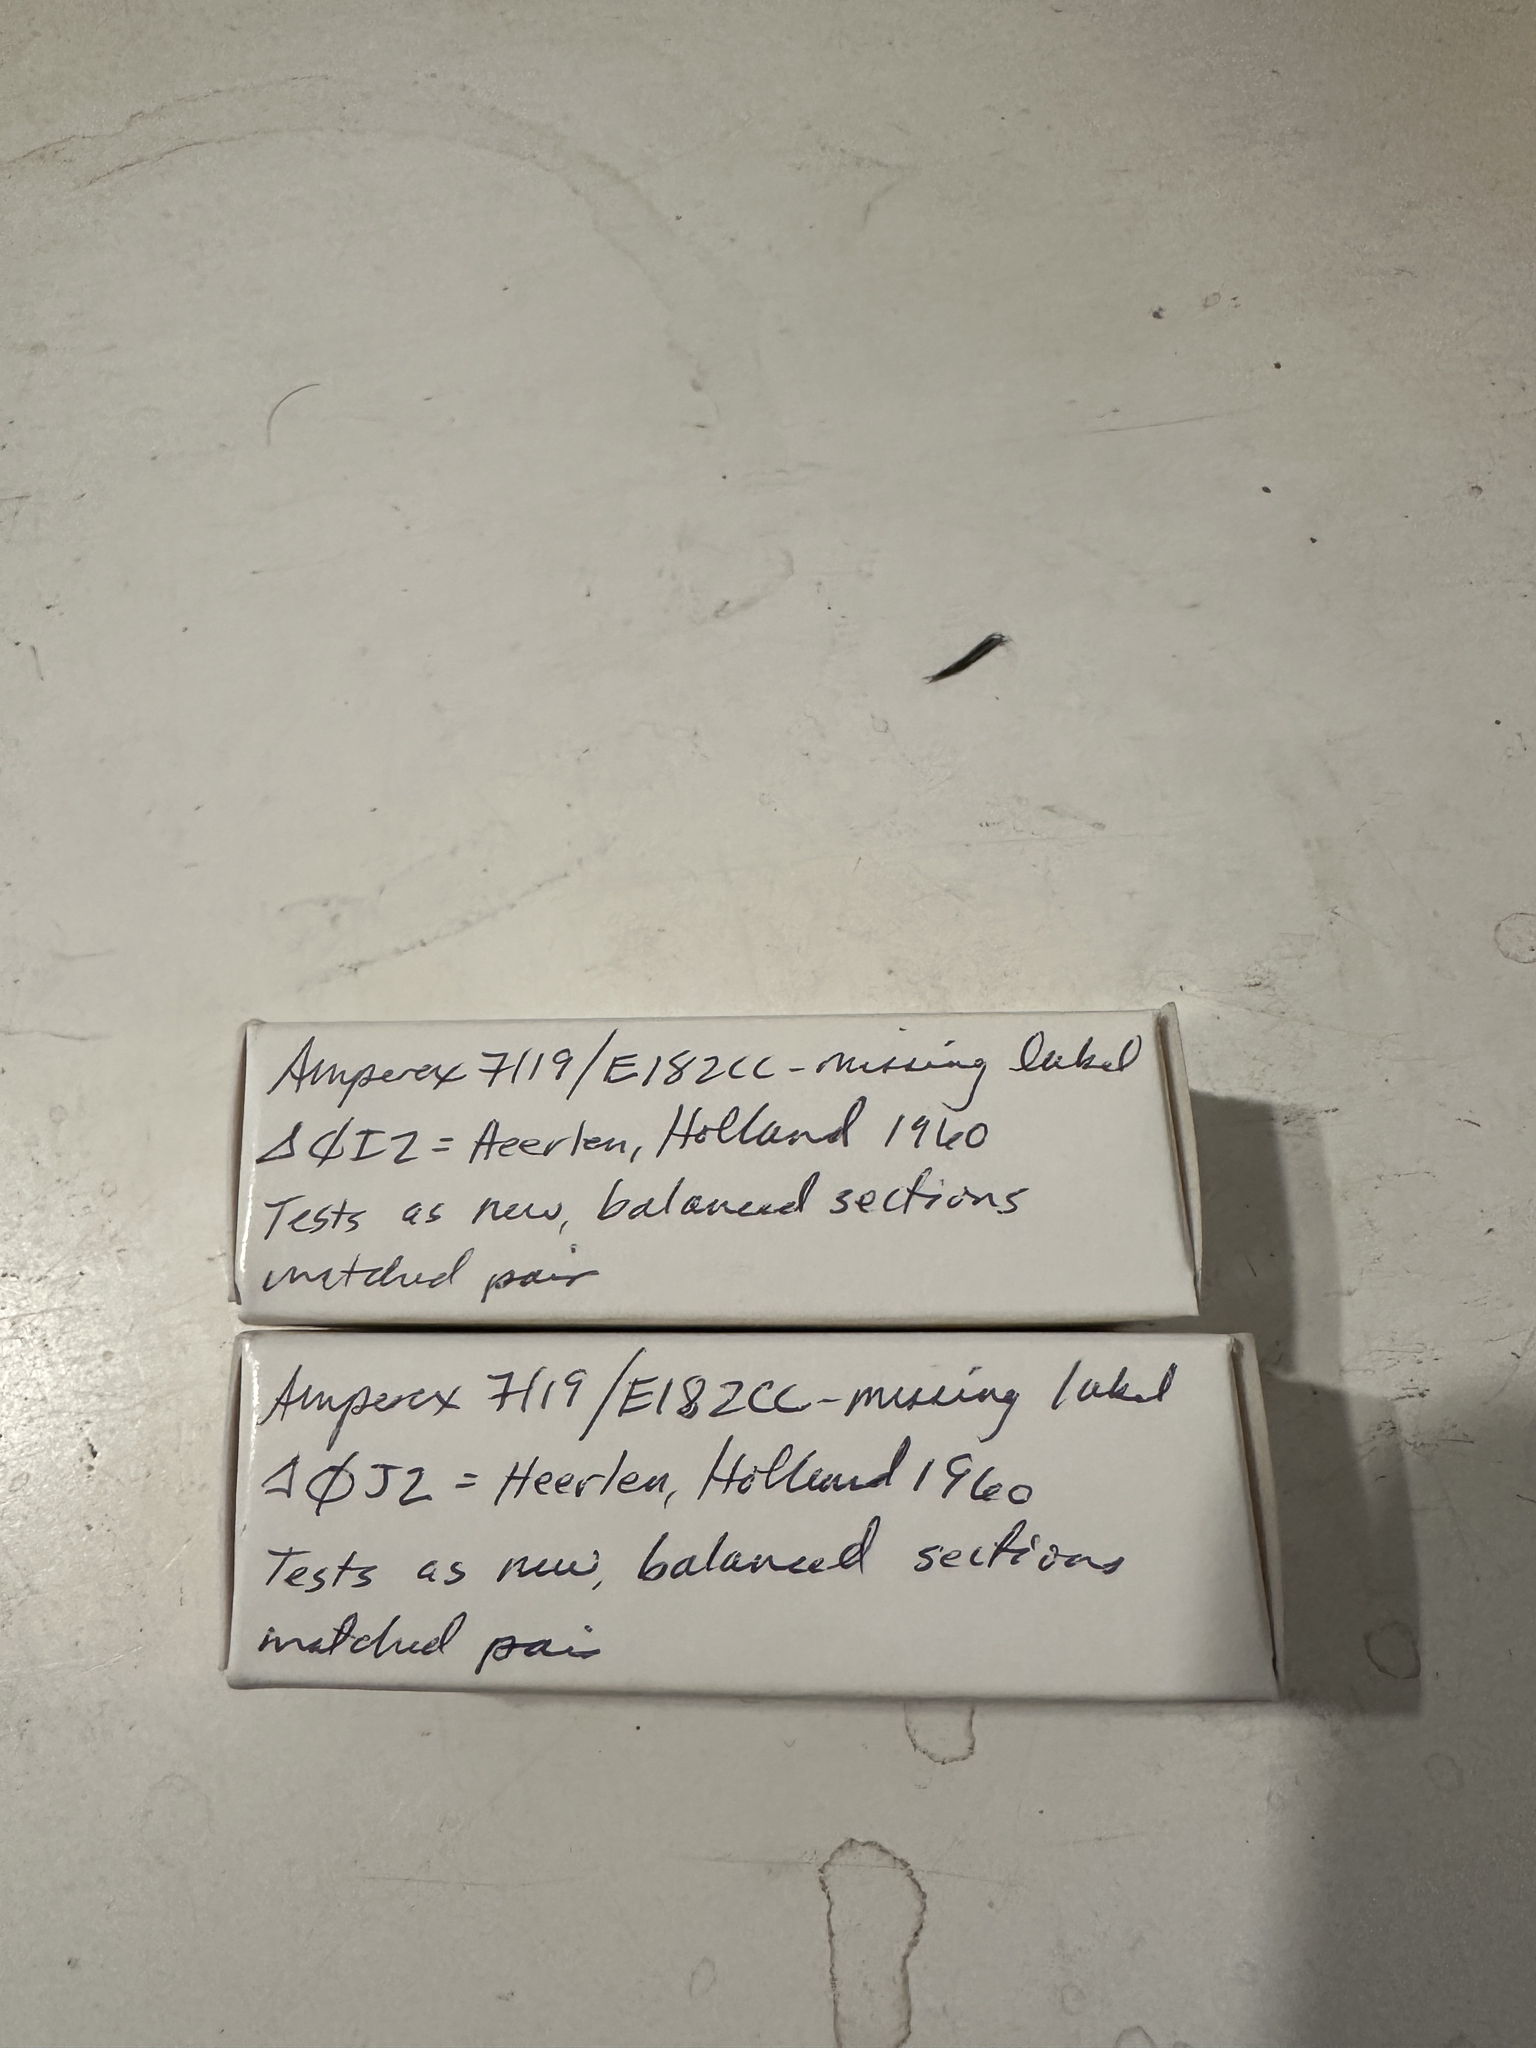 Amperex 7119/E182CC - missing label
Δ0I2 = Heerlen, Holland 1960
Tests as new, balanced sections
matched pair
Amperex 7119/E182CC - missing label
Δ0J2 = Heerlen, Holland 1960
Tests as new, balanced sections
matched pair